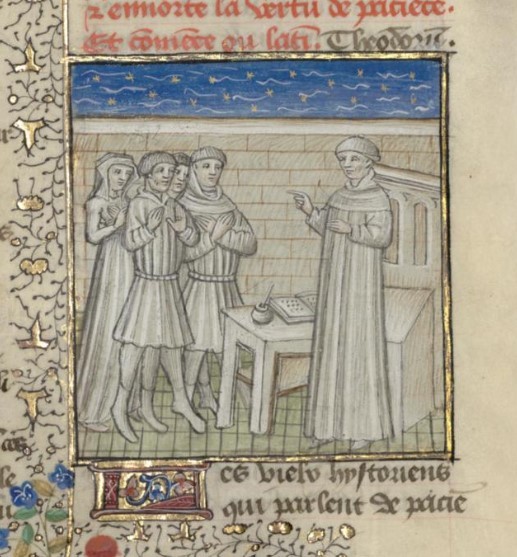 z enhorte la vertu de pacieče.
Et cōmēce ou latī. Theodorus.
Les vielx hystoriens
qui parlent de pacie